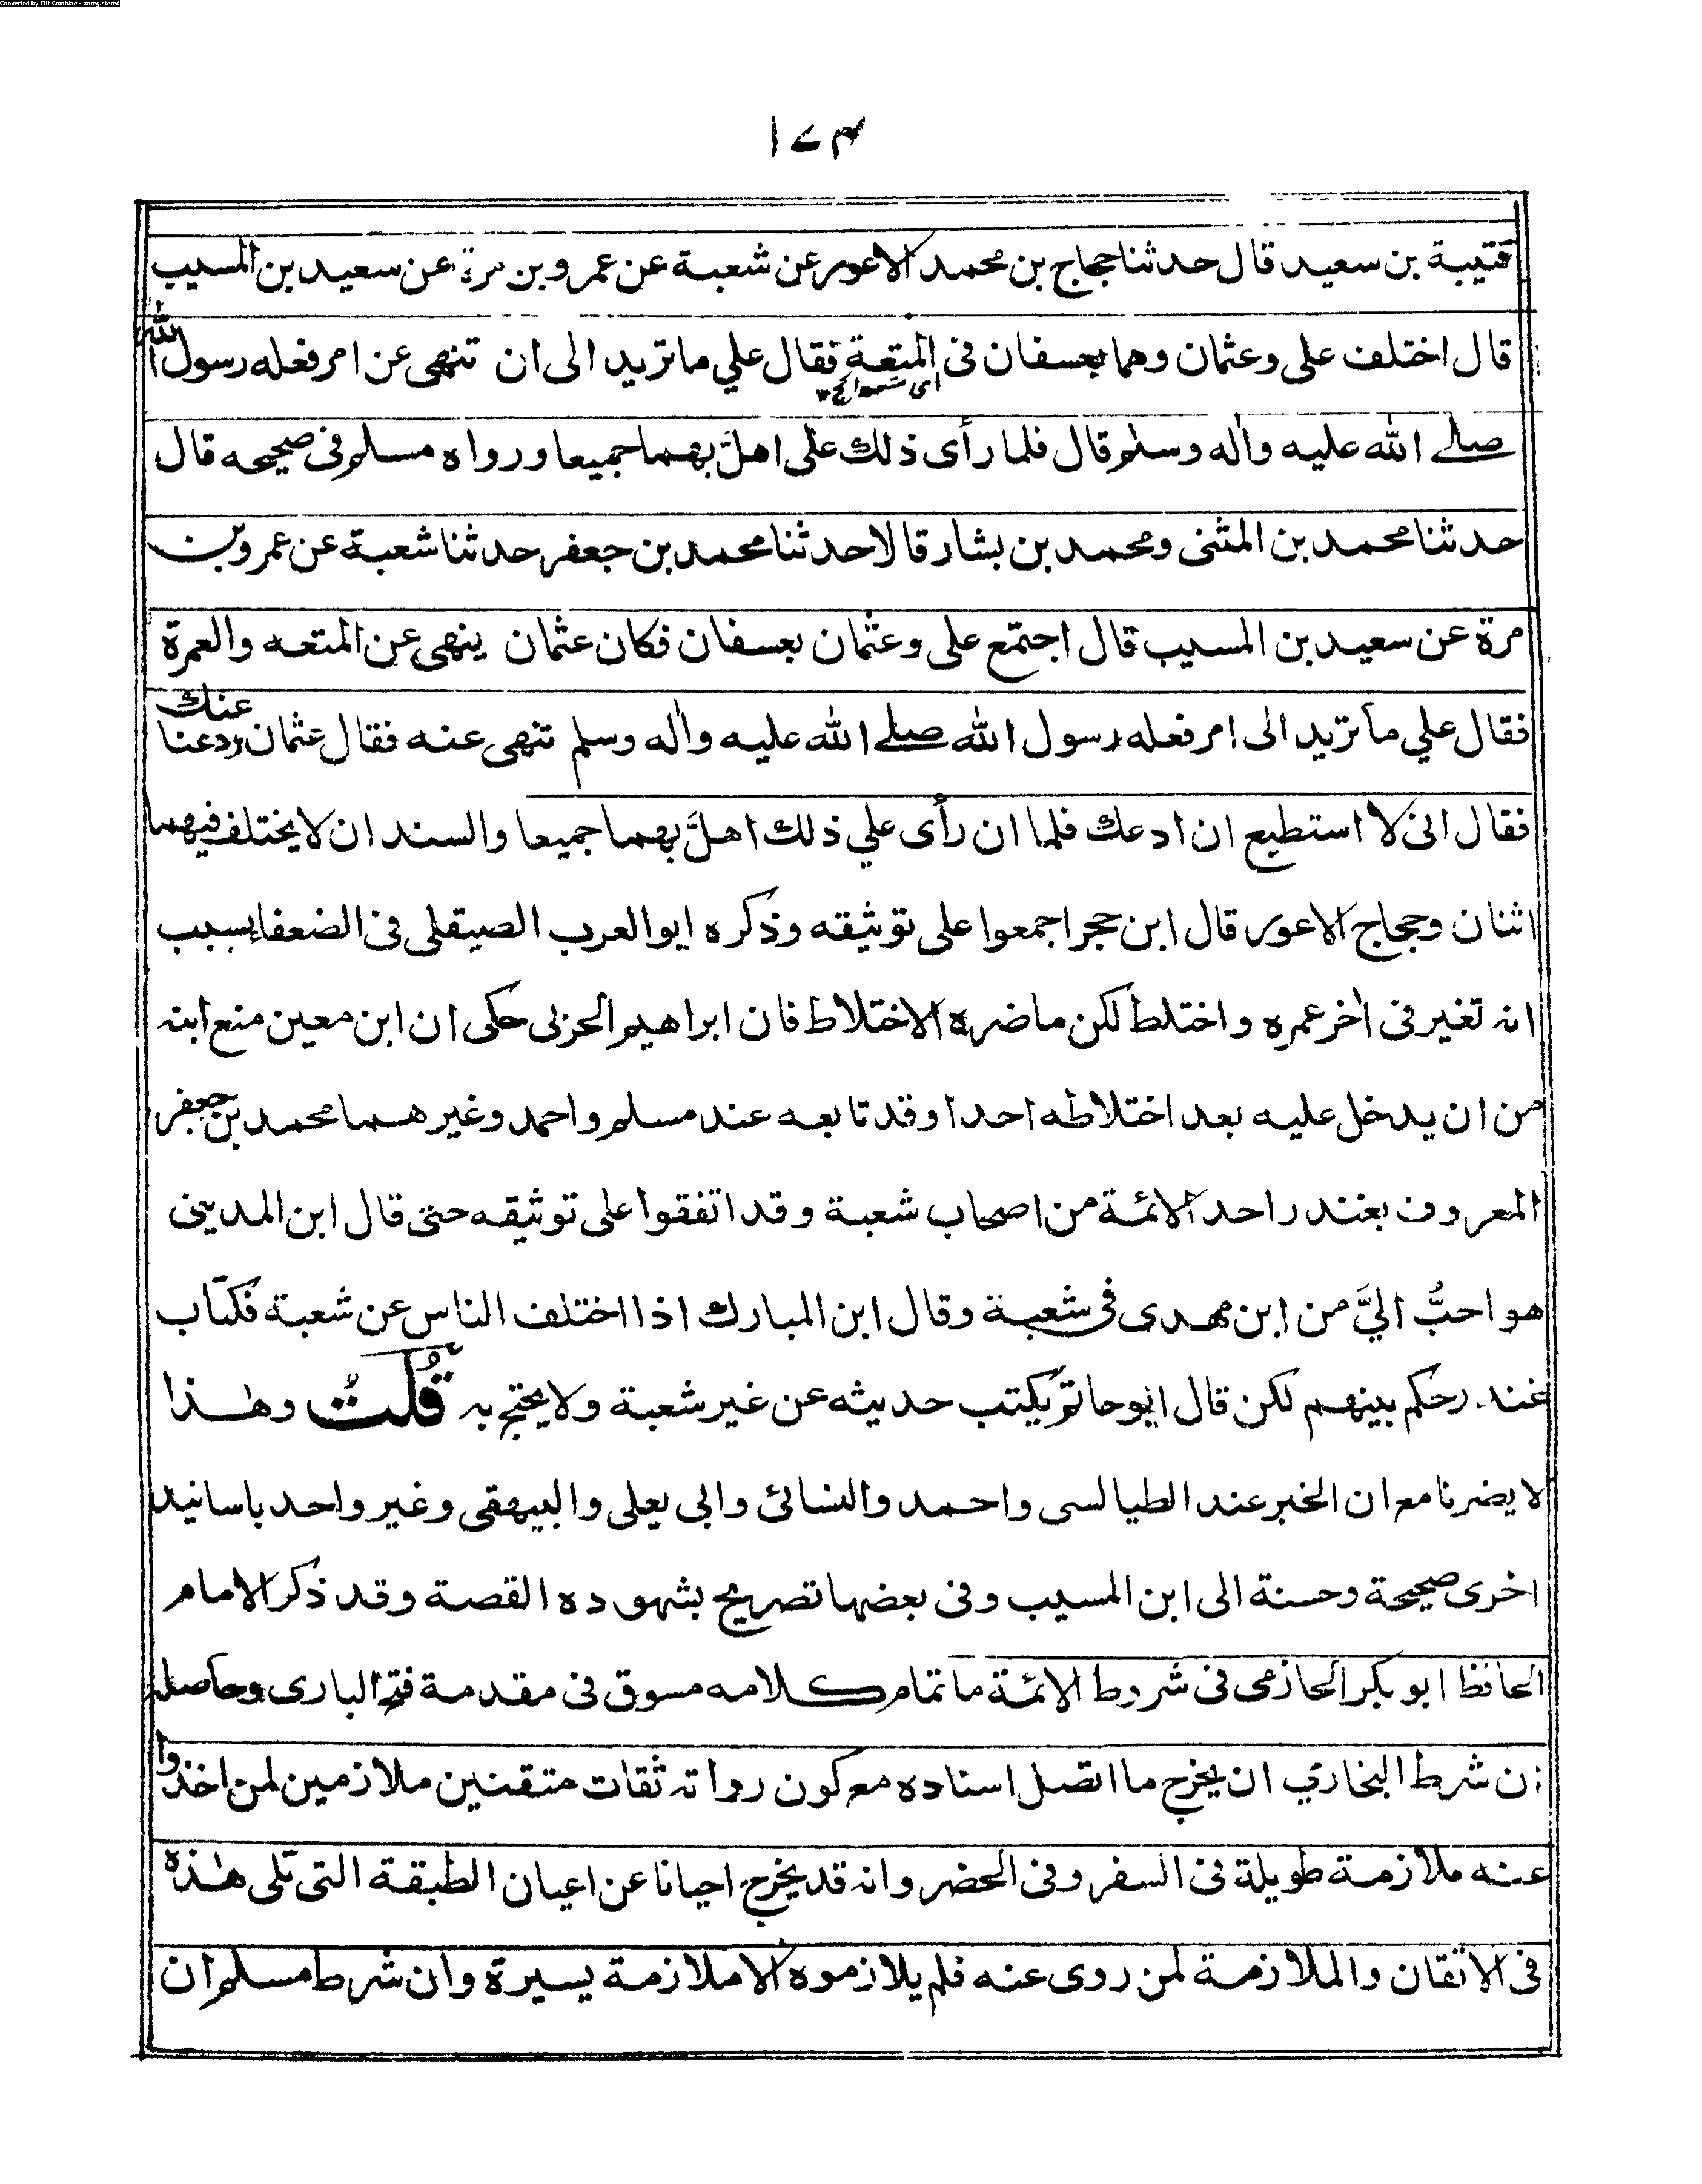 Converted by Tiff Combine - unregistered
١٧٣
قتيبة بن سعيد قال حدثنا حجاج بن محمد الاعور عن شعبة عن عمرو بن مرة عن سعيد بن المسيب
قال اختلف على وعثمان وهما بعسفان فى المتعة فقال علي ما تريد الى ان تنهى عن امر فعله رسول الله
صلے الله عليه واٰله وسلم قال فلما رأى ذلك على اهلَّ بهما جميعا ورواه مسلم فى صحيحه قال
حدثنا محمد بن المثنى ومحمد بن بشار قالا حدثنا محمد بن جعفر حدثنا شعبة عن عمرو بن
مرة عن سعيد بن المسيب قال اجتمع على وعثمان بعسفان فكان عثمان ينهى عن المتعه والعمرة
فقال علي ما تريد الى امر فعله رسول الله صلے الله عليه واٰله وسلم تنهى عنه فقال عثمان دعنا عنك
فقال انى لا استطيع ان ادعك فلما ان رأى علي ذلك اهلَّ بهما جميعا والسند ان لا يختلف فيهما
اثنان وحجاج الاعور قال ابن حجر اجمعوا على توثيقه وذكره ابو العرب الصيقلى فى الضعفا بسبب
انه تغير فى اٰخر عمره واختلط لكن ما ضره الاختلاط فان ابراهيم الحربى حكى ان ابن معين منع ابنه
من ان يدخل عليه بعد اختلاطه احدا وقد تابعه عند مسلم واحمد وغيرهما محمد بن جعفر
المعروف بغندر احد الائمة من اصحاب شعبة وقد اتفقوا على توثيقه حتى قال ابن المدينى
هو احبُّ اليَّ من ابن مهدى فى شعبة وقال ابن المبارك اذا اختلف الناس عن شعبة فكتاب
غندر حكم بينهم لكن قال ابو حاتم يكتب حديثه عن غير شعبة ولا يحتج به قُلتُ وهٰذا
لا يضرنا مع ان الخبر عند الطيالسى واحمد والنسائ وابى يعلى والبيهقى وغير واحد باسانيد
اخرى صحيحة وحسنة الى ابن المسيب وفى بعضها تصريح بشهوده القصة وقد ذكر الامام
الحافظ ابو بكر الحازمى فى شروط الائمة ما تمام كلامه مسوق فى مقدمة فتح البارى وحاصله
ان شرط البخاري ان يخرج ما اتصل اسناده مع كون رواته ثقات متقنين ملازمين لمن اخذوا
عنه ملازمة طويلة فى السفر وفى الحضر وانه قد يخرج احيانا عن اعيان الطبقة التى تلى هٰذه
فى الاتقان والملازمة لمن روى عنه فلم يلازموه الا ملازمة يسيرة وان شرط مسلم ان